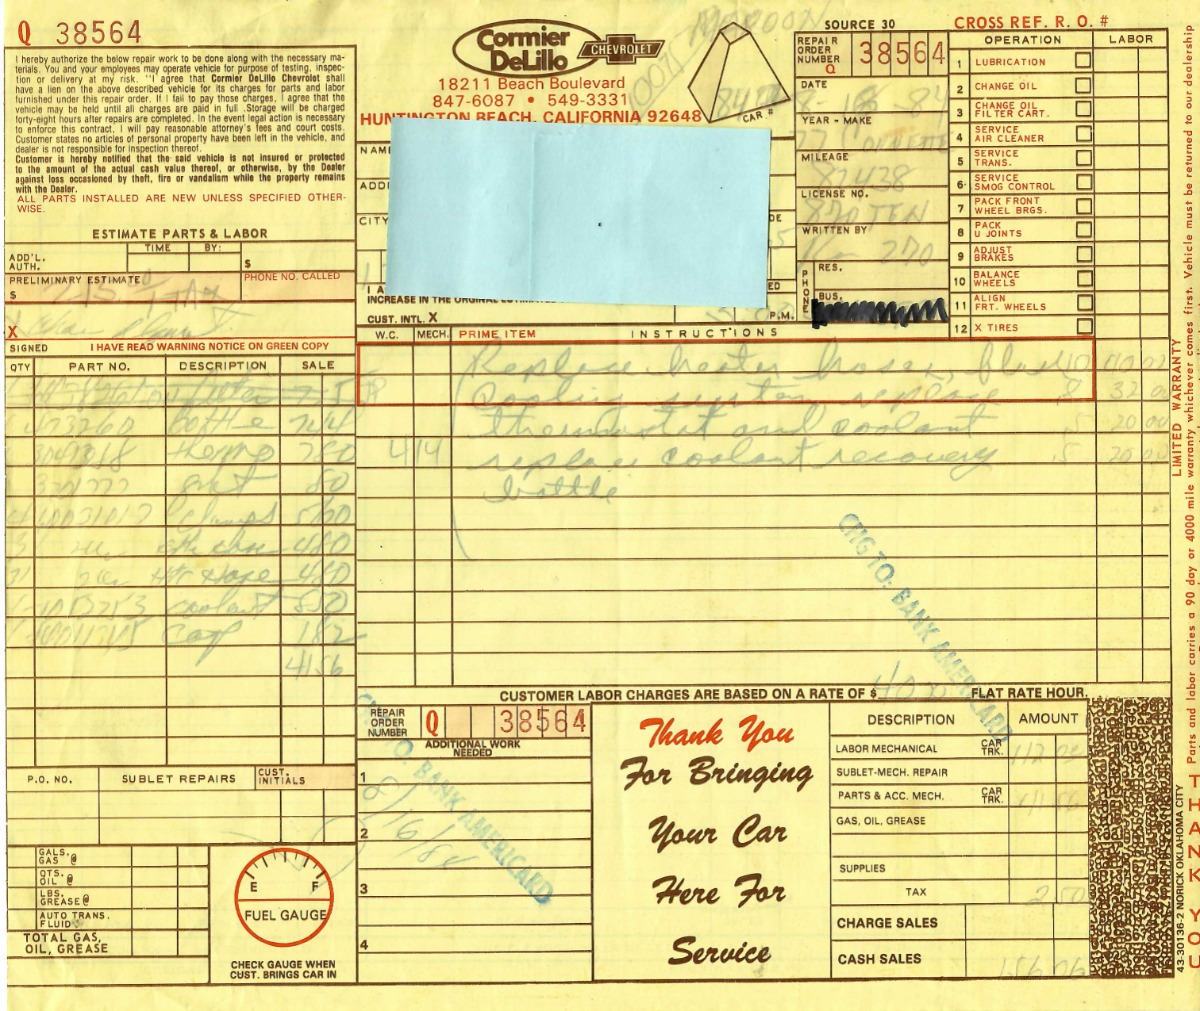 Q 38564
I hereby authorize the below repair work to be done along with the necessary ma-
terials. You and your employees may operate vehicle for purpose of testing, inspec-
tion or delivery at my risk. "I agree that Cormier DeLillo Chevrolet shall
have a lien on the above described vehicle for its charges for parts and labor
furnished under this repair order. If I fail to pay those charges, I agree that the
vehicle may be held until all charges are paid in full. Storage will be charged
forty-eight hours after repairs are completed. In the event legal action is necessary
to enforce this contract, I will pay reasonable attorney's fees and court costs.
Customer states no articles of personal property have been left in the vehicle, and
dealer is not responsible for inspection thereof.
Customer is hereby notified that the said vehicle is not insured or protected
to the amount of the actual cash value thereof, or otherwise, by the Dealer
against loss occasioned by theft, fire or vandalism while the property remains
with the Dealer.
ALL PARTS INSTALLED ARE NEW UNLESS SPECIFIED OTHER-
WISE.
ESTIMATE PARTS & LABOR
TIME BY:
ADD'L. AUTH. $
PRELIMINARY ESTIMATE PHONE NO. CALLED
$ TAX
X
SIGNED I HAVE READ WARNING NOTICE ON GREEN COPY
Cormier DeLillo CHEVROLET
18211 Beach Boulevard
847-6087 • 549-3331
HUNTINGTON BEACH, CALIFORNIA 92648
MAROON
CAR #
NAME
ADD
CITY
INCREASE IN THE ORIGINAL
CUST. INTL. X P.M.
SOURCE 30
REPAIR ORDER NUMBER Q 38564
DATE 8-16 84
YEAR - MAKE 77 CORVETTE
MILEAGE 82438
LICENSE NO. 820 TEN
WRITTEN BY 270
PHONE
RES.
BUS.
CROSS REF. R. O. #
OPERATION LABOR
1 LUBRICATION
2 CHANGE OIL
3 CHANGE OIL FILTER CART.
4 SERVICE AIR CLEANER
5 SERVICE TRANS.
6 SERVICE SMOG CONTROL
7 PACK FRONT WHEEL BRGS.
8 PACK U JOINTS
9 ADJUST BRAKES
10 BALANCE WHEELS
11 ALIGN FRT. WHEELS
12 X TIRES
QTY PART NO. DESCRIPTION SALE
473260 bottle 744
thermo 780
80
clamps 500
480
Htr Hose 480
coolant 850
cap 182
4156
W.C. MECH. PRIME ITEM INSTRUCTIONS
Replace heater hoses, bleed
cooling system replace .8 32 00
thermostat and coolant .5 20 00
414 replace coolant recovery .5 20 00
bottle
CHG TO: BANK AMERICARD
CUSTOMER LABOR CHARGES ARE BASED ON A RATE OF $ 40 00 FLAT RATE HOUR.
P.O. NO. SUBLET REPAIRS CUST. INITIALS
GALS. GAS @
QTS. OIL @
LBS. GREASE @
AUTO TRANS. FLUID
TOTAL GAS, OIL, GREASE
E F
FUEL GAUGE
CHECK GAUGE WHEN
CUST. BRINGS CAR IN
REPAIR ORDER NUMBER Q 38564
ADDITIONAL WORK NEEDED
1
2
3
4
8/16/84
CHG TO: BANK AMERICARD
Thank You
For Bringing
Your Car
Here For
Service
DESCRIPTION AMOUNT
LABOR MECHANICAL CAR TRK. 112 00
SUBLET-MECH. REPAIR
PARTS & ACC. MECH. CAR TRK. 41 56
GAS, OIL, GREASE
SUPPLIES
TAX 2 50
CHARGE SALES
CASH SALES 156 06
LIMITED WARRANTY
Parts and labor carries a 90 day or 4000 mile warranty whichever comes first. Vehicle must be returned to our dealership
43-30136-2 NORICK OKLAHOMA CITY
THANK YOU